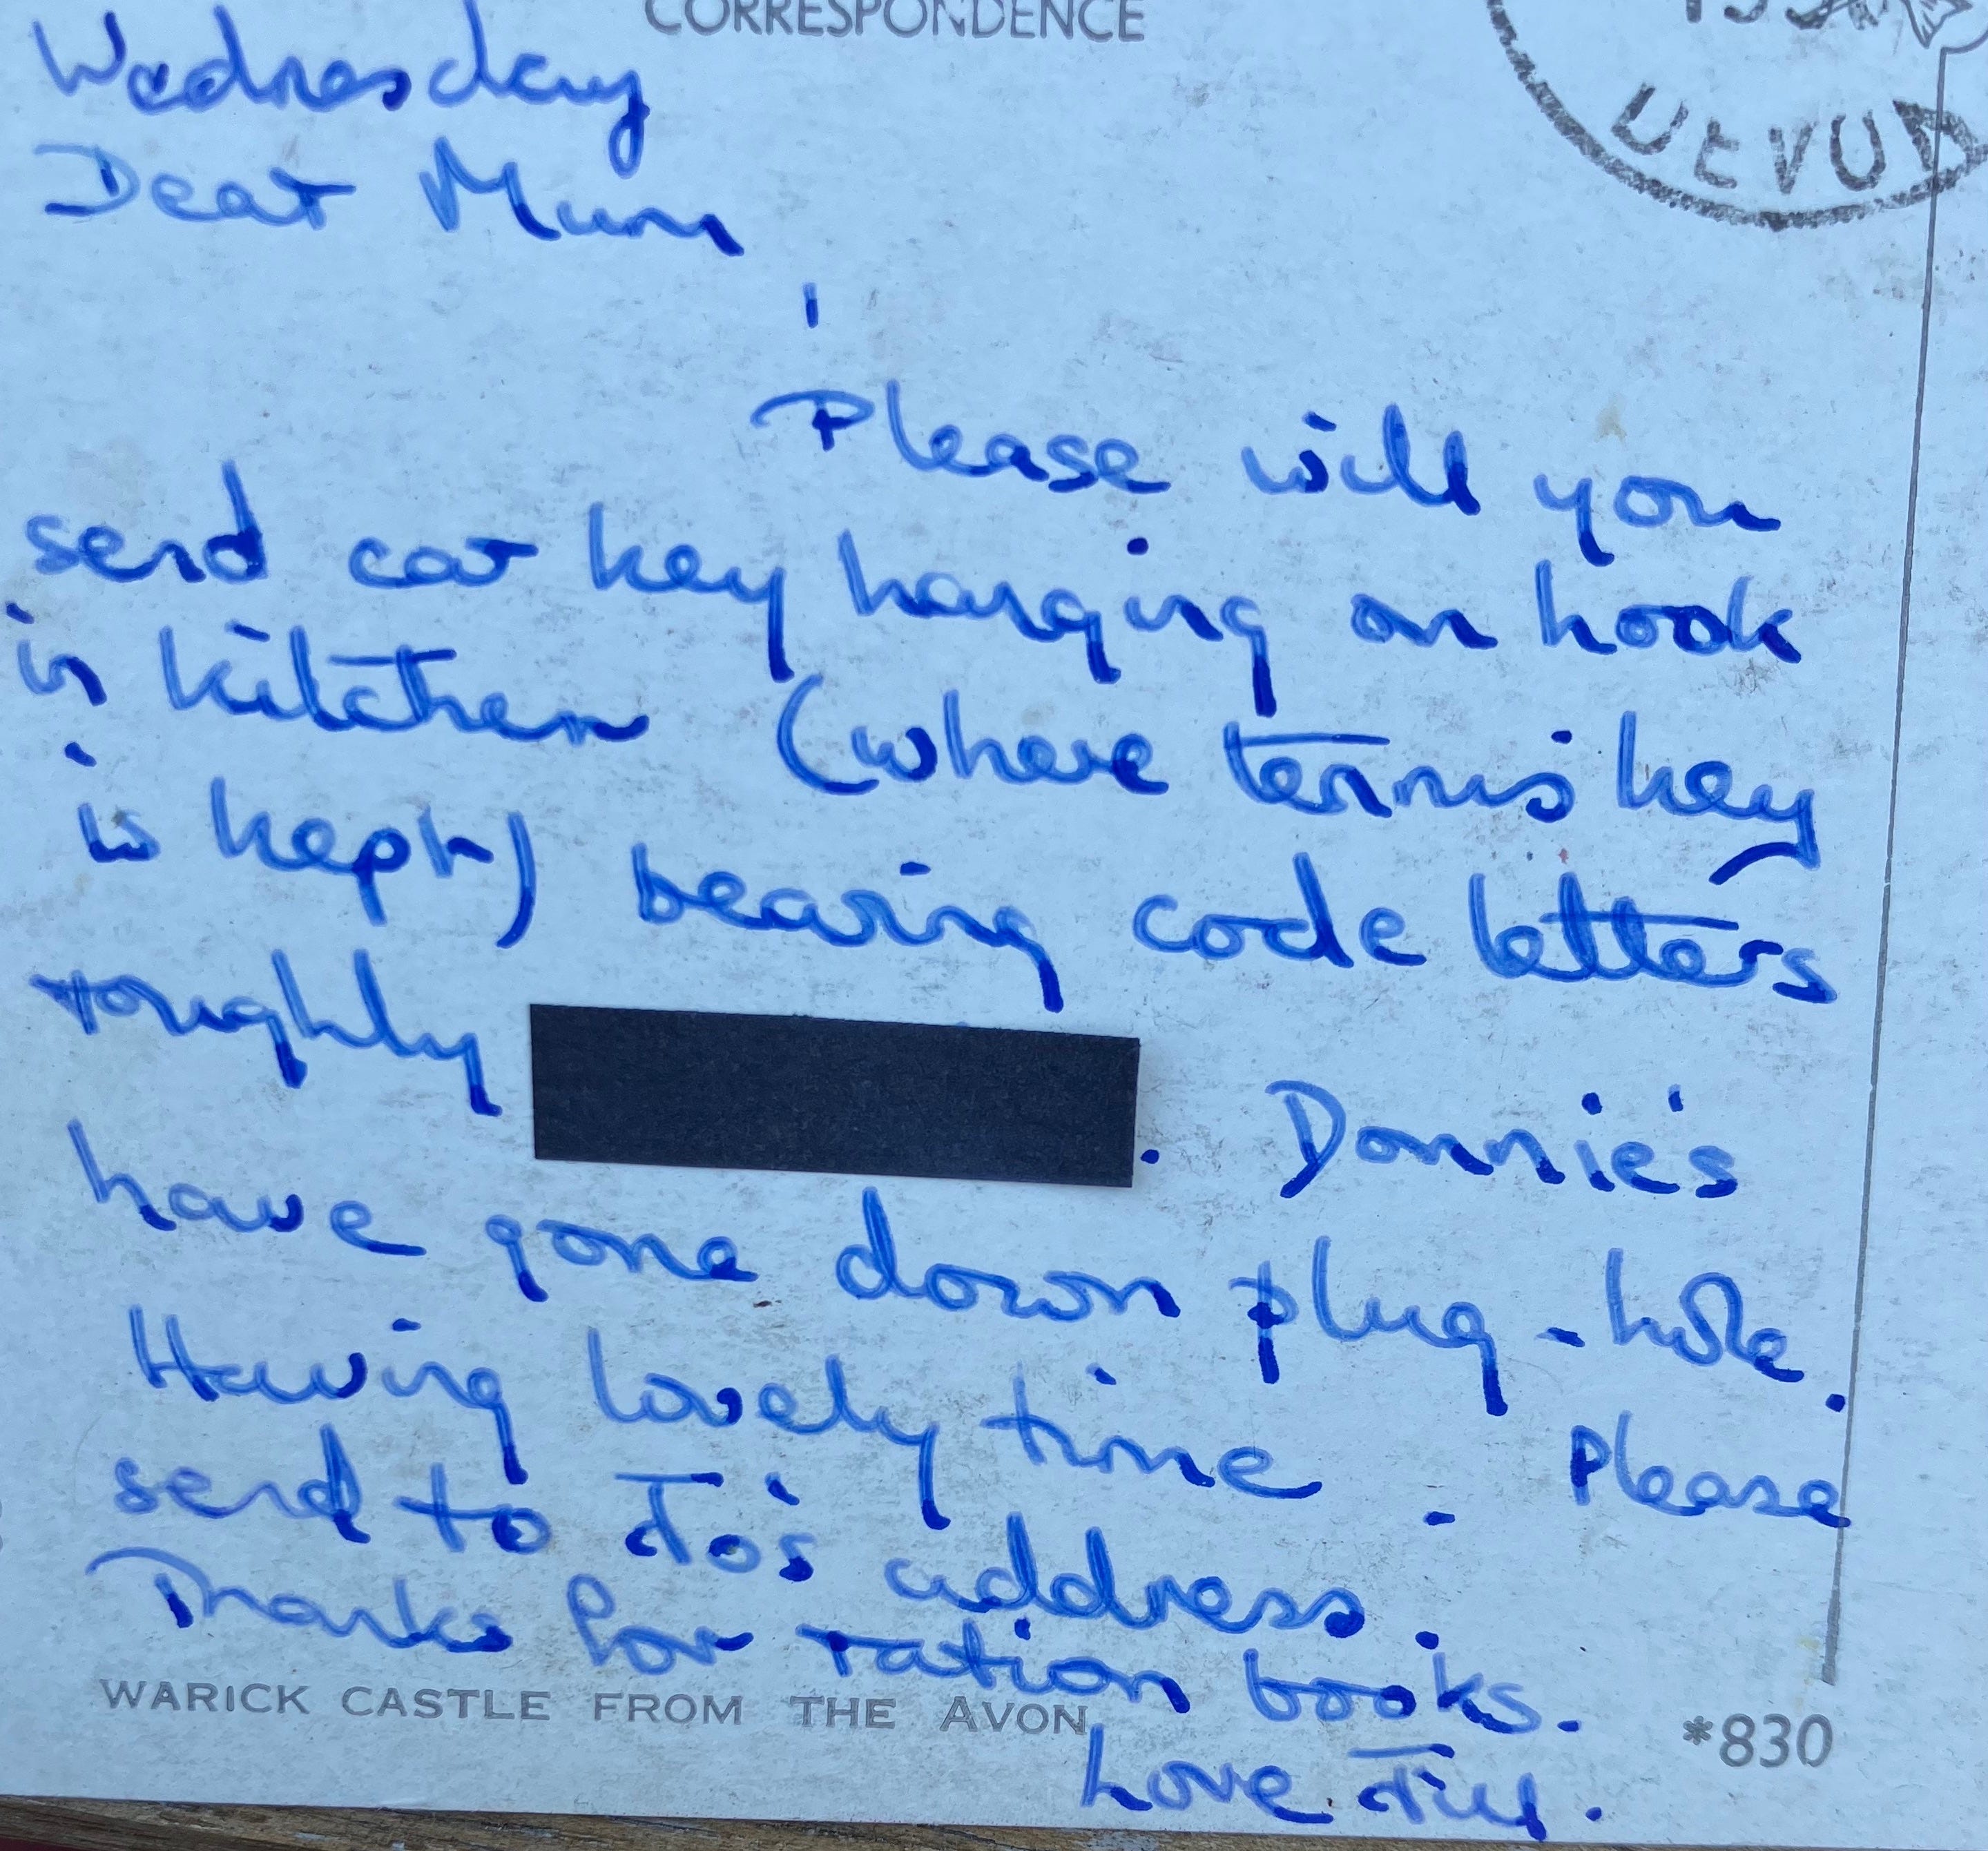 CORRESPONDENCE
DEVON
Wednesday
Dear Mum,
Please will you
send car key hanging on hook
in kitchen (where tennis key
is kept) bearing code letters
roughly . Donnie's
have gone down plug-hole.
Having lovely time. Please
send to Jo's address.
Thanks for ration books.
WARICK CASTLE FROM THE AVON
*830
Love Jill.